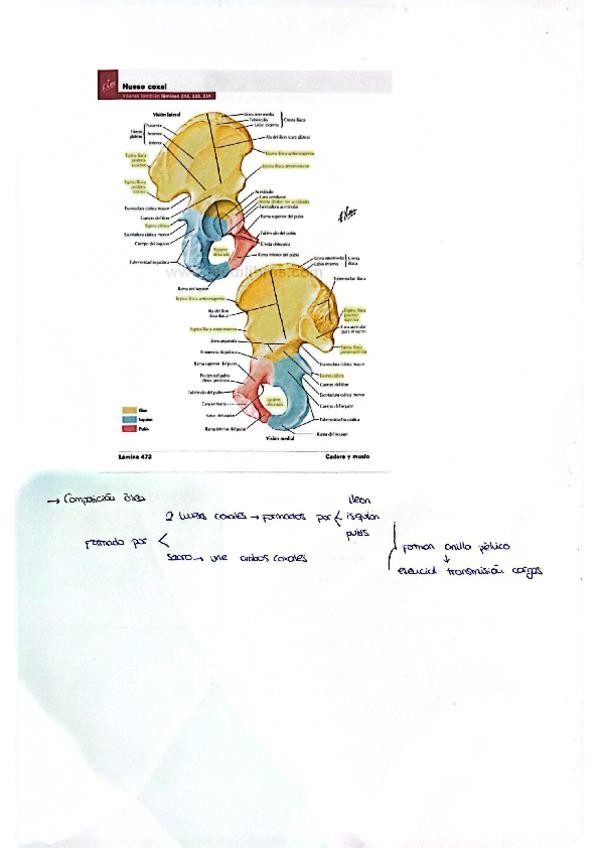 Hueso coxal
Véanse también láminas
Visión lateral
Línea intermedia
Tubérculo
Labio externo
Cresta ilíaca
Ala del ilion (cara glútea)
Líneas glúteas
Posterior
Anterior
Inferior
Espina ilíaca posterior superior
Espina ilíaca anterosuperior
Espina ilíaca anteroinferior
Espina ilíaca posterior inferior
Acetábulo
Cara semilunar
Escotadura acetabular
Escotadura ciática mayor
Cuerpo del ilion
Espina ciática
Escotadura ciática menor
Cuerpo del isquion
Tuberosidad isquiática
Rama superior del pubis
Tubérculo del pubis
Cresta obturatriz
Rama inferior del pubis
Agujero obturado
Rama del isquion
Línea intermedia
Labio interno
Cresta ilíaca
Tuberosidad ilíaca
Espina ilíaca anterosuperior
Espina ilíaca posterior superior
Ala del ilion (fosa ilíaca)
Espina ilíaca anteroinferior
Cara auricular para el sacro
Línea arqueada
Rama superior del pubis
Escotadura ciática mayor
Espina ciática
Cuerpo del ilion
Escotadura ciática menor
Cuerpo del isquion
Tubérculo del pubis
Agujero obturado
Tuberosidad isquiática
Rama inferior del pubis
Rama del isquion
Visión medial
Ilion
Isquion
Pubis
Lámina 473
Cadera y muslo
→ Composición ósea
formado por <
2 huesos coxales → formados por <
ileon
isquion
pubis
sacro → une ambos coxales
forman anillo pélvico
↓
esencial transmisión cargas